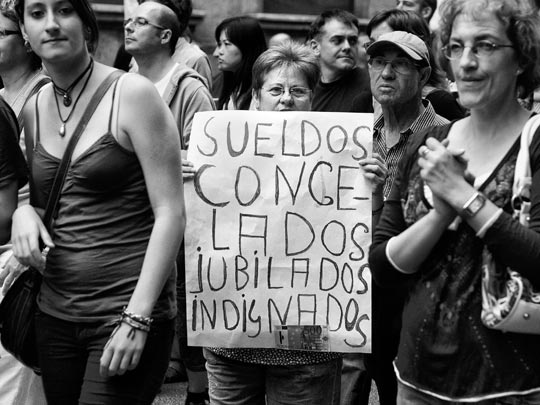 SUELDOS
CONGE-
LADOS
JUBILADOS
INDIGNADOS